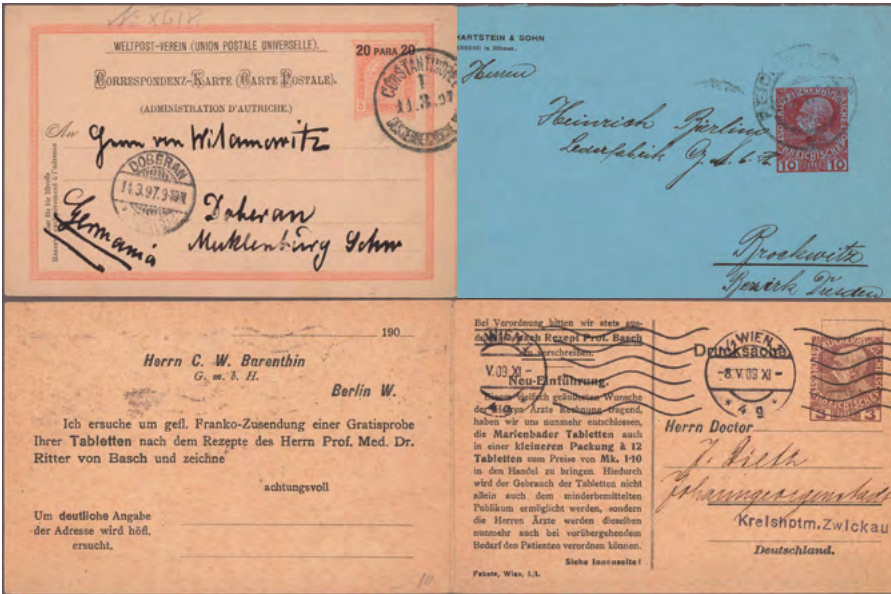 WELTPOST-VEREIN (UNION POSTALE UNIVERSELLE).
20 PARA 20
CORRESPONDENZ-KARTE (CARTE POSTALE).
(ADMINISTRATION D'AUTRICHE.)
CONSTANTINOPEL
1
11.3.97
An
Herrn von Wilamowitz
DOBERAN
14.3.97.9-10N.
Doberan
Germania
Mecklenburg Schw
HARTSTEIN & SOHN
in Böhmen.
Herren
Heinrich Bierling
Lederfabrik G.
10 10
Brockwitz
Bezirk Dresden
190
Herrn C. W. Barenthin
G. m. b. H.
Berlin W.
Ich ersuche um gefl. Franko-Zusendung einer Gratisprobe
Ihrer Tabletten nach dem Rezepte des Herrn Prof. Med. Dr.
Ritter von Basch und zeichne
achtungsvoll
Um deutliche Angabe
der Adresse wird höfl.
ersucht.
10
Bei Verordnung bitten wir stets aus-
nach Rezept Prof. Basch
zu verschreiben.
Neu-Einführung.
Einem vielfach geäußerten Wunsche
der Herren Ärzte Rechnung tragend,
haben wir uns nunmehr entschlossen,
die Marienbader Tabletten auch
in einer kleineren Packung à 12
Tabletten zum Preise von Mk. 1·10
in den Handel zu bringen. Hiedurch
wird der Gebrauch der Tabletten nicht
allein auch dem minderbemittelten
Publikum ermöglicht werden, sondern
die Herren Ärzte werden dieselben
nunmehr auch bei vorübergehendem
Bedarf den Patienten verordnen können.
Siehe Innenseite!
Pakete, Wien, I./1.
WIEN 1
V. 09 XI -
* 4g
Drucksache.
1/1 WIEN 1
-8. V. 09 XI -
* 4g *
3 3
Herrn Doctor
J. Dieth
Johanngeorgenstadt
Kreishptm. Zwickau
Deutschland.